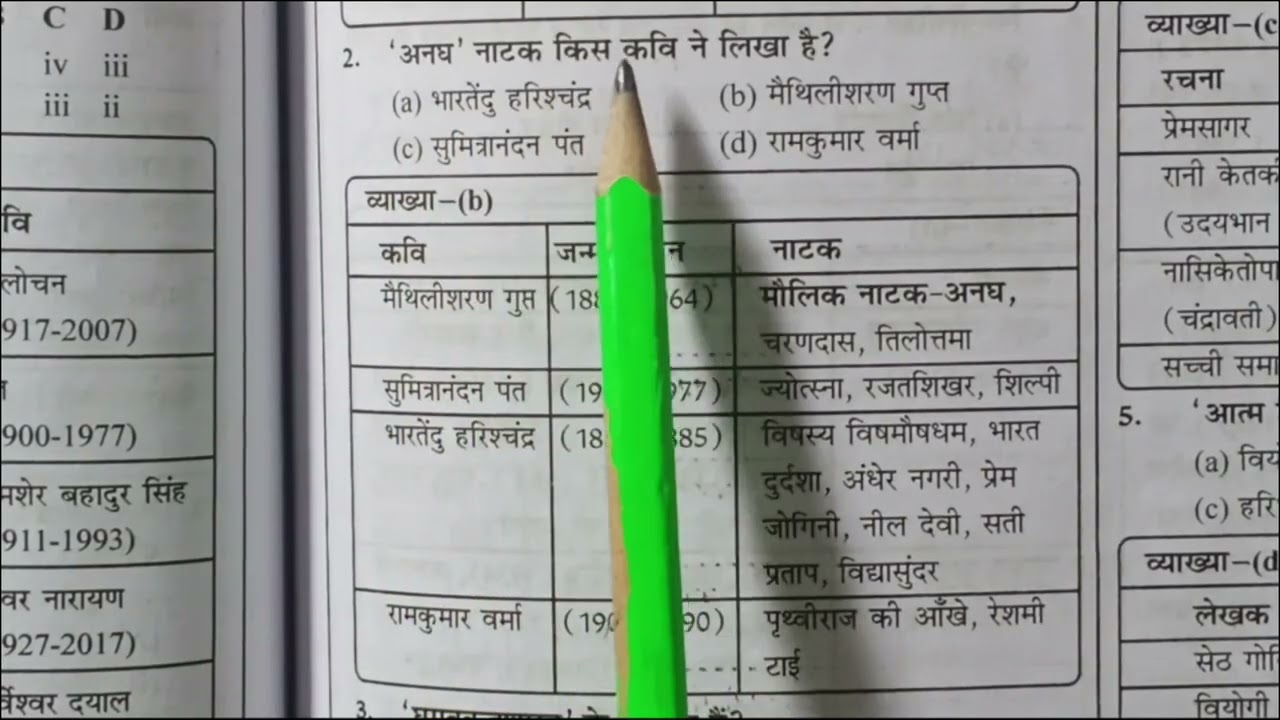 C D
iv iii
iii ii
वि
लोचन
917-2007)
900-1977)
मशेर बहादुर सिंह
911-1993)
वर नारायण
927-2017)
र्वेश्वर दयाल
2. 'अनघ' नाटक किस कवि ने लिखा है?
(a) भारतेंदु हरिश्चंद्र (b) मैथिलीशरण गुप्त
(c) सुमित्रानंदन पंत (d) रामकुमार वर्मा
व्याख्या–(b)
कवि जन्म न नाटक
मैथिलीशरण गुप्त (188 64) मौलिक नाटक-अनघ,
चरणदास, तिलोत्तमा
सुमित्रानंदन पंत (19 977) ज्योत्स्ना, रजतशिखर, शिल्पी
भारतेंदु हरिश्चंद्र (18 885) विषस्य विषमौषधम, भारत
दुर्दशा, अंधेर नगरी, प्रेम
जोगिनी, नील देवी, सती
प्रताप, विद्यासुंदर
रामकुमार वर्मा (190 90) पृथ्वीराज की आँखे, रेशमी
टाई
3.
व्याख्या–(c
रचना
प्रेमसागर
रानी केतकी
(उदयभान
नासिकेतोपा
(चंद्रावती)
सच्ची समा
5. 'आत्म
(a) विय
(c) हरि
व्याख्या–(d
लेखक
सेठ गो
वियोगी